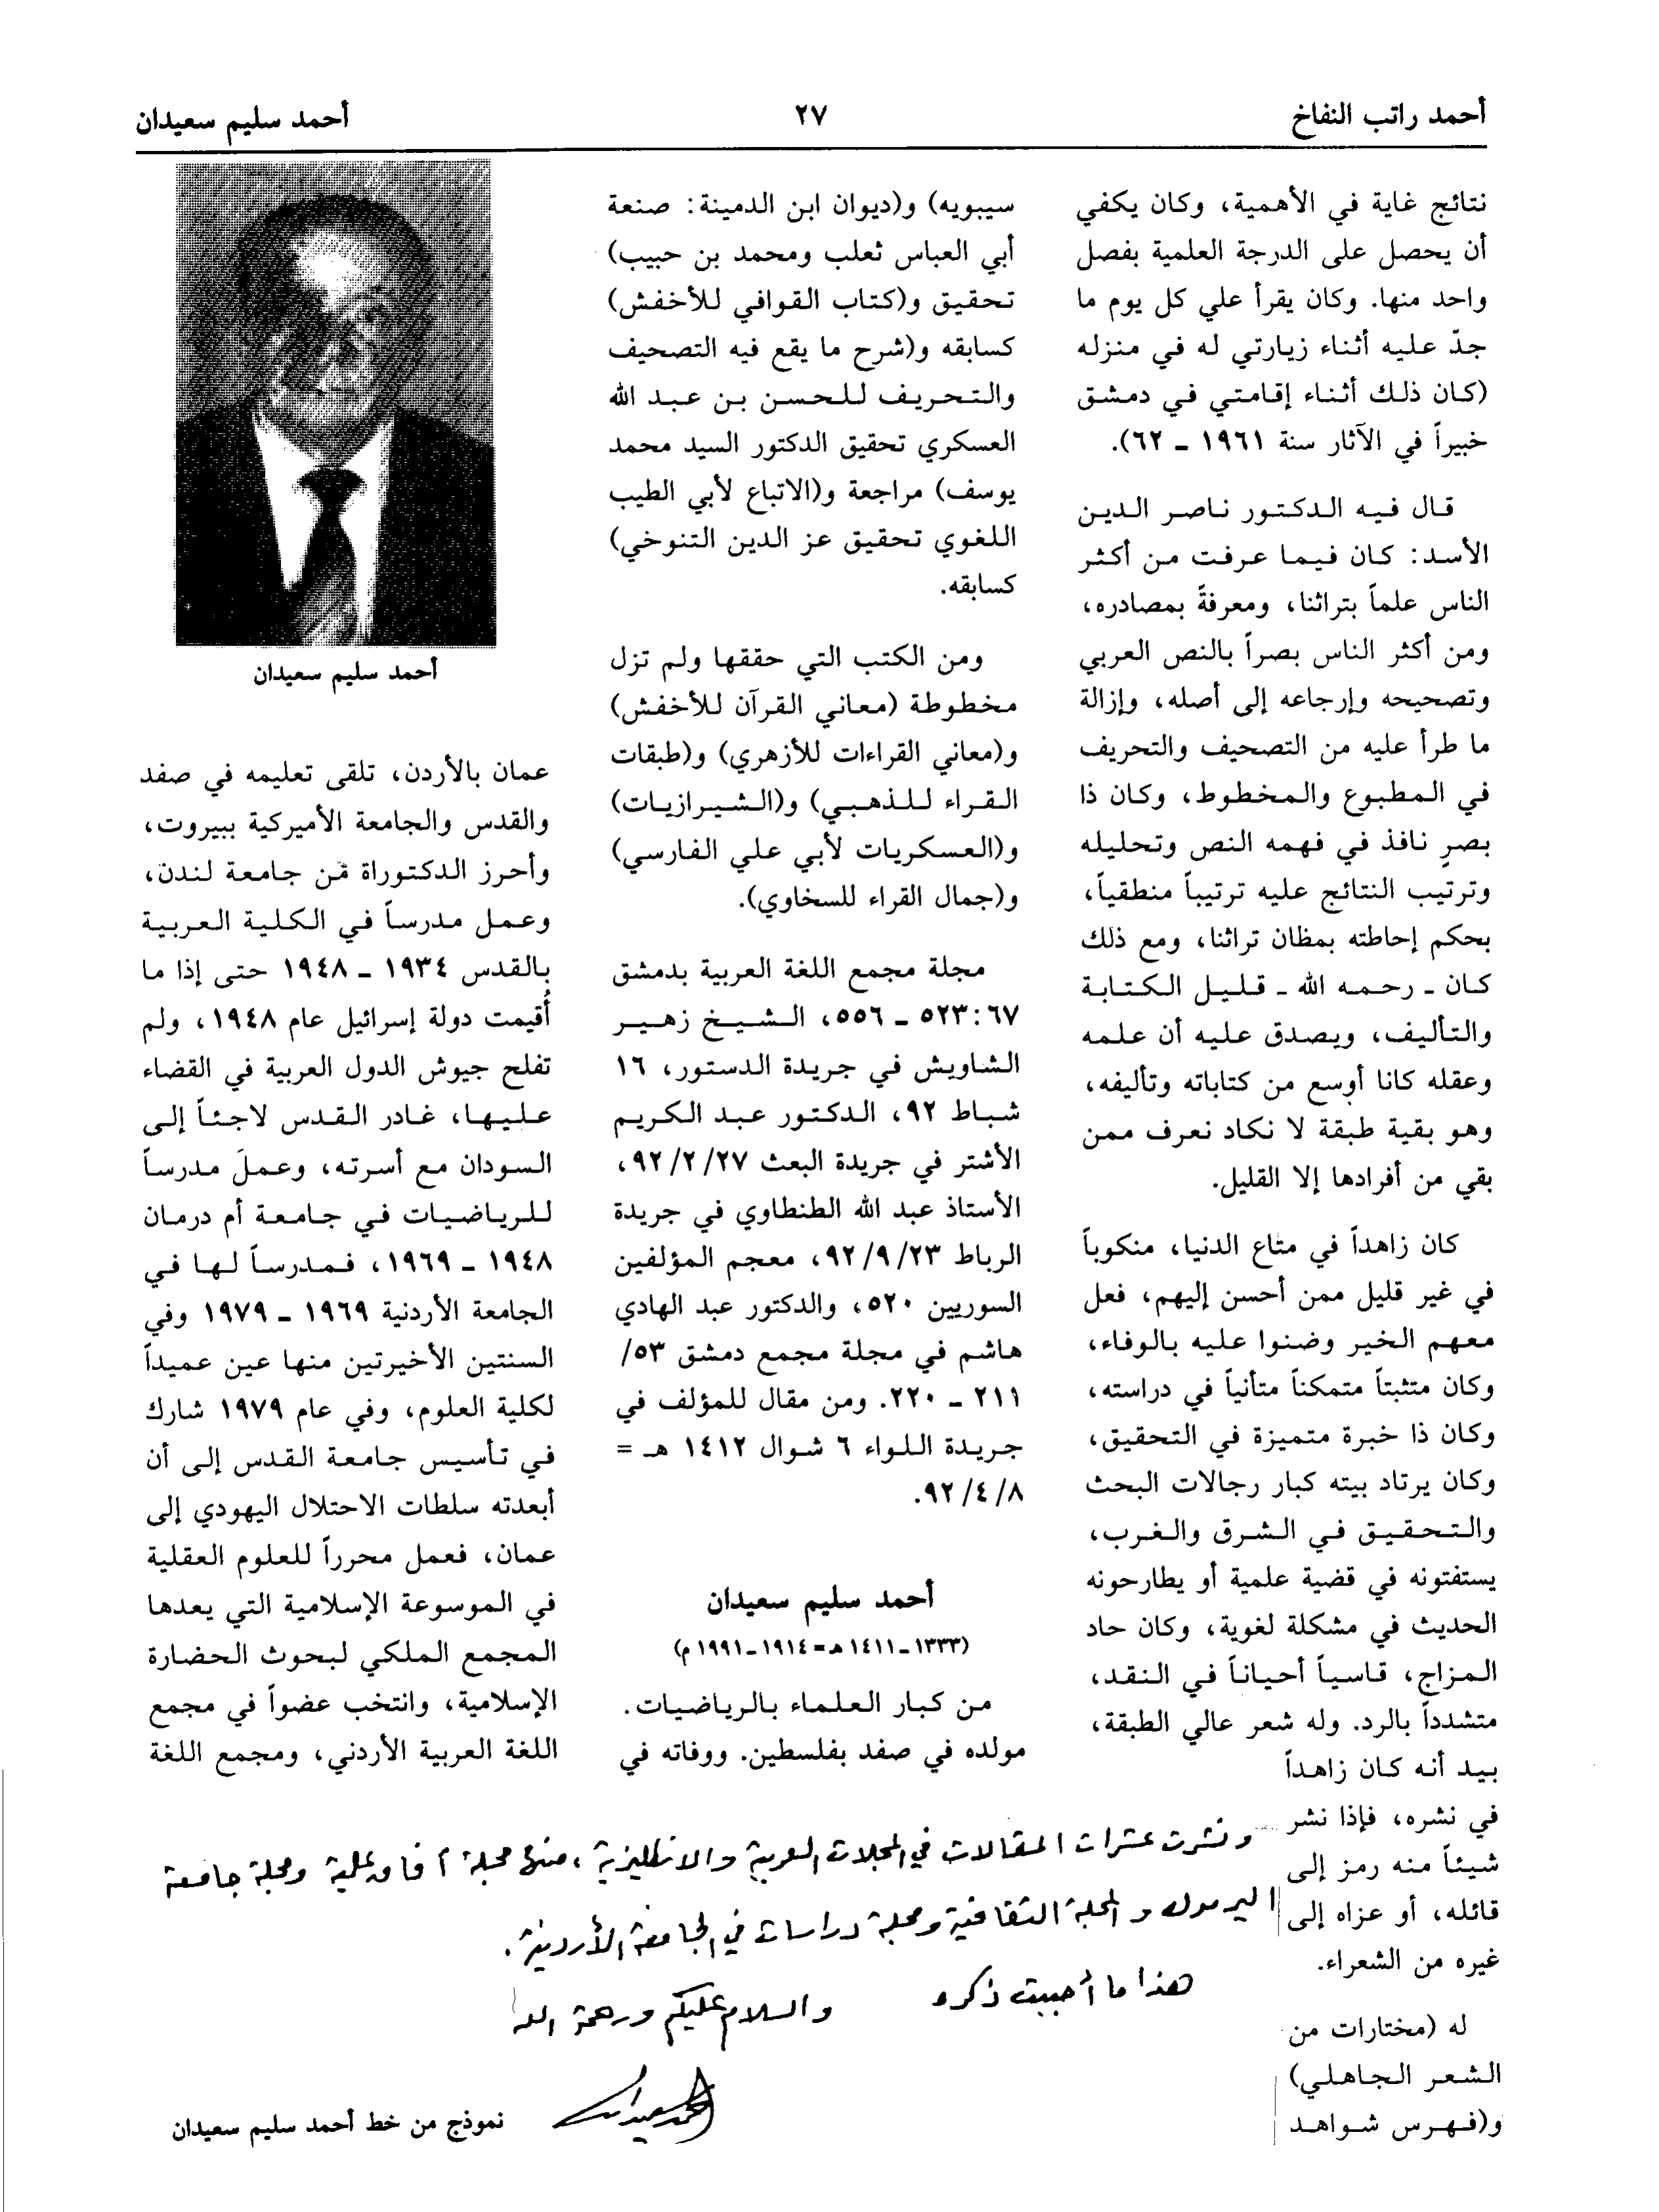 أحمد راتب النفاخ
٢٧
أحمد سليم سعيدان
نتائج غاية في الأهمية، وكان يكفي
أن يحصل على الدرجة العلمية بفصل
واحد منها. وكان يقرأ علي كل يوم ما
جدّ عليه أثناء زيارتي له في منزله
(كان ذلك أثناء إقامتي في دمشق
خبيراً في الآثار سنة ١٩٦١ ـ ٦٢).
قال فيه الدكتور ناصر الدين
الأسد: كان فيما عرفت من أكثر
الناس علماً بتراثنا، ومعرفةً بمصادره،
ومن أكثر الناس بصراً بالنص العربي
وتصحيحه وإرجاعه إلى أصله، وإزالة
ما طرأ عليه من التصحيف والتحريف
في المطبوع والمخطوط، وكان ذا
بصرٍ نافذ في فهمه النص وتحليله
وترتيب النتائج عليه ترتيباً منطقياً،
بحكم إحاطته بمظان تراثنا، ومع ذلك
كان ـ رحمه الله ـ قليل الكتابة
والتأليف، ويصدق عليه أن علمه
وعقله كانا أوسع من كتاباته وتأليفه،
وهو بقية طبقة لا نكاد نعرف ممن
بقي من أفرادها إلا القليل.
كان زاهداً في متاع الدنيا، منكوباً
في غير قليل ممن أحسن إليهم، فعل
معهم الخير وضنوا عليه بالوفاء،
وكان متثبتاً متمكناً متأنياً في دراسته،
وكان ذا خبرة متميزة في التحقيق،
وكان يرتاد بيته كبار رجالات البحث
والتحقيق في الشرق والغرب،
يستفتونه في قضية علمية أو يطارحونه
الحديث في مشكلة لغوية، وكان حاد
المزاج، قاسياً أحياناً في النقد،
متشدداً بالرد. وله شعر عالي الطبقة،
بيد أنه كان زاهداً
في نشره، فإذا نشر
شيئاً منه رمز إلى
قائله، أو عزاه إلى
غيره من الشعراء.
له (مختارات من
الشعر الجاهلي)
و(فهرس شواهد
سيبويه) و(ديوان ابن الدمينة: صنعة
أبي العباس ثعلب ومحمد بن حبيب)
تحقيق و(كتاب القوافي للأخفش)
كسابقه و(شرح ما يقع فيه التصحيف
والتحريف للحسن بن عبد الله
العسكري تحقيق الدكتور السيد محمد
يوسف) مراجعة و(الاتباع لأبي الطيب
اللغوي تحقيق عز الدين التنوخي)
كسابقه.
ومن الكتب التي حققها ولم تزل
مخطوطة (معاني القرآن للأخفش)
و(معاني القراءات للأزهري) و(طبقات
القراء للذهبي) و(الشيرازيات)
و(العسكريات لأبي علي الفارسي)
و(جمال القراء للسخاوي).
مجلة مجمع اللغة العربية بدمشق
٥٢٣:٦٧ ـ ٥٥٦، الشيخ زهير
الشاويش في جريدة الدستور، ١٦
شباط ٩٢، الدكتور عبد الكريم
الأشتر في جريدة البعث ٩٢/٢/٢٧،
الأستاذ عبد الله الطنطاوي في جريدة
الرباط ٩٢/٩/٢٣، معجم المؤلفين
السوريين ٥٢٠، والدكتور عبد الهادي
هاشم في مجلة مجمع دمشق ٥٣/
٢١١ ـ ٢٢٠. ومن مقال للمؤلف في
جريدة اللواء ٦ شوال ١٤١٢ هـ =
٩٢/٤/٨.
أحمد سليم سعيدان
(١٣٣٣ـ١٤١١هـ=١٩١٤ـ١٩٩١م)
من كبار العلماء بالرياضيات.
مولده في صفد بفلسطين. ووفاته في
أحمد سليم سعيدان
عمان بالأردن، تلقى تعليمه في صفد
والقدس والجامعة الأميركية ببيروت،
وأحرز الدكتوراة من جامعة لندن،
وعمل مدرساً في الكلية العربية
بالقدس ١٩٣٤ ـ ١٩٤٨ حتى إذا ما
أُقيمت دولة إسرائيل عام ١٩٤٨، ولم
تفلح جيوش الدول العربية في القضاء
عليها، غادر القدس لاجئاً إلى
السودان مع أسرته، وعملَ مدرساً
للرياضيات في جامعة أم درمان
١٩٤٨ ـ ١٩٦٩، فمدرساً لها في
الجامعة الأردنية ١٩٦٩ ـ ١٩٧٩ وفي
السنتين الأخيرتين منها عين عميداً
لكلية العلوم، وفي عام ١٩٧٩ شارك
في تأسيس جامعة القدس إلى أن
أبعدته سلطات الاحتلال اليهودي إلى
عمان، فعمل محرراً للعلوم العقلية
في الموسوعة الإسلامية التي يعدها
المجمع الملكي لبحوث الحضارة
الإسلامية، وانتخب عضواً في مجمع
اللغة العربية الأردني، ومجمع اللغة
ونشرت عشرات المقالات في المجلات العربية والانكليزية، منها مجلة آفاق علمية ومجلة جامعة
اليرموك والمجلة الثقافية ومجلة دراسات في الجامعة الأردنية.
هذا ما أحببت ذكره والسلام عليكم ورحمة الله
أحمد سعيدان
نموذج من خط أحمد سليم سعيدان